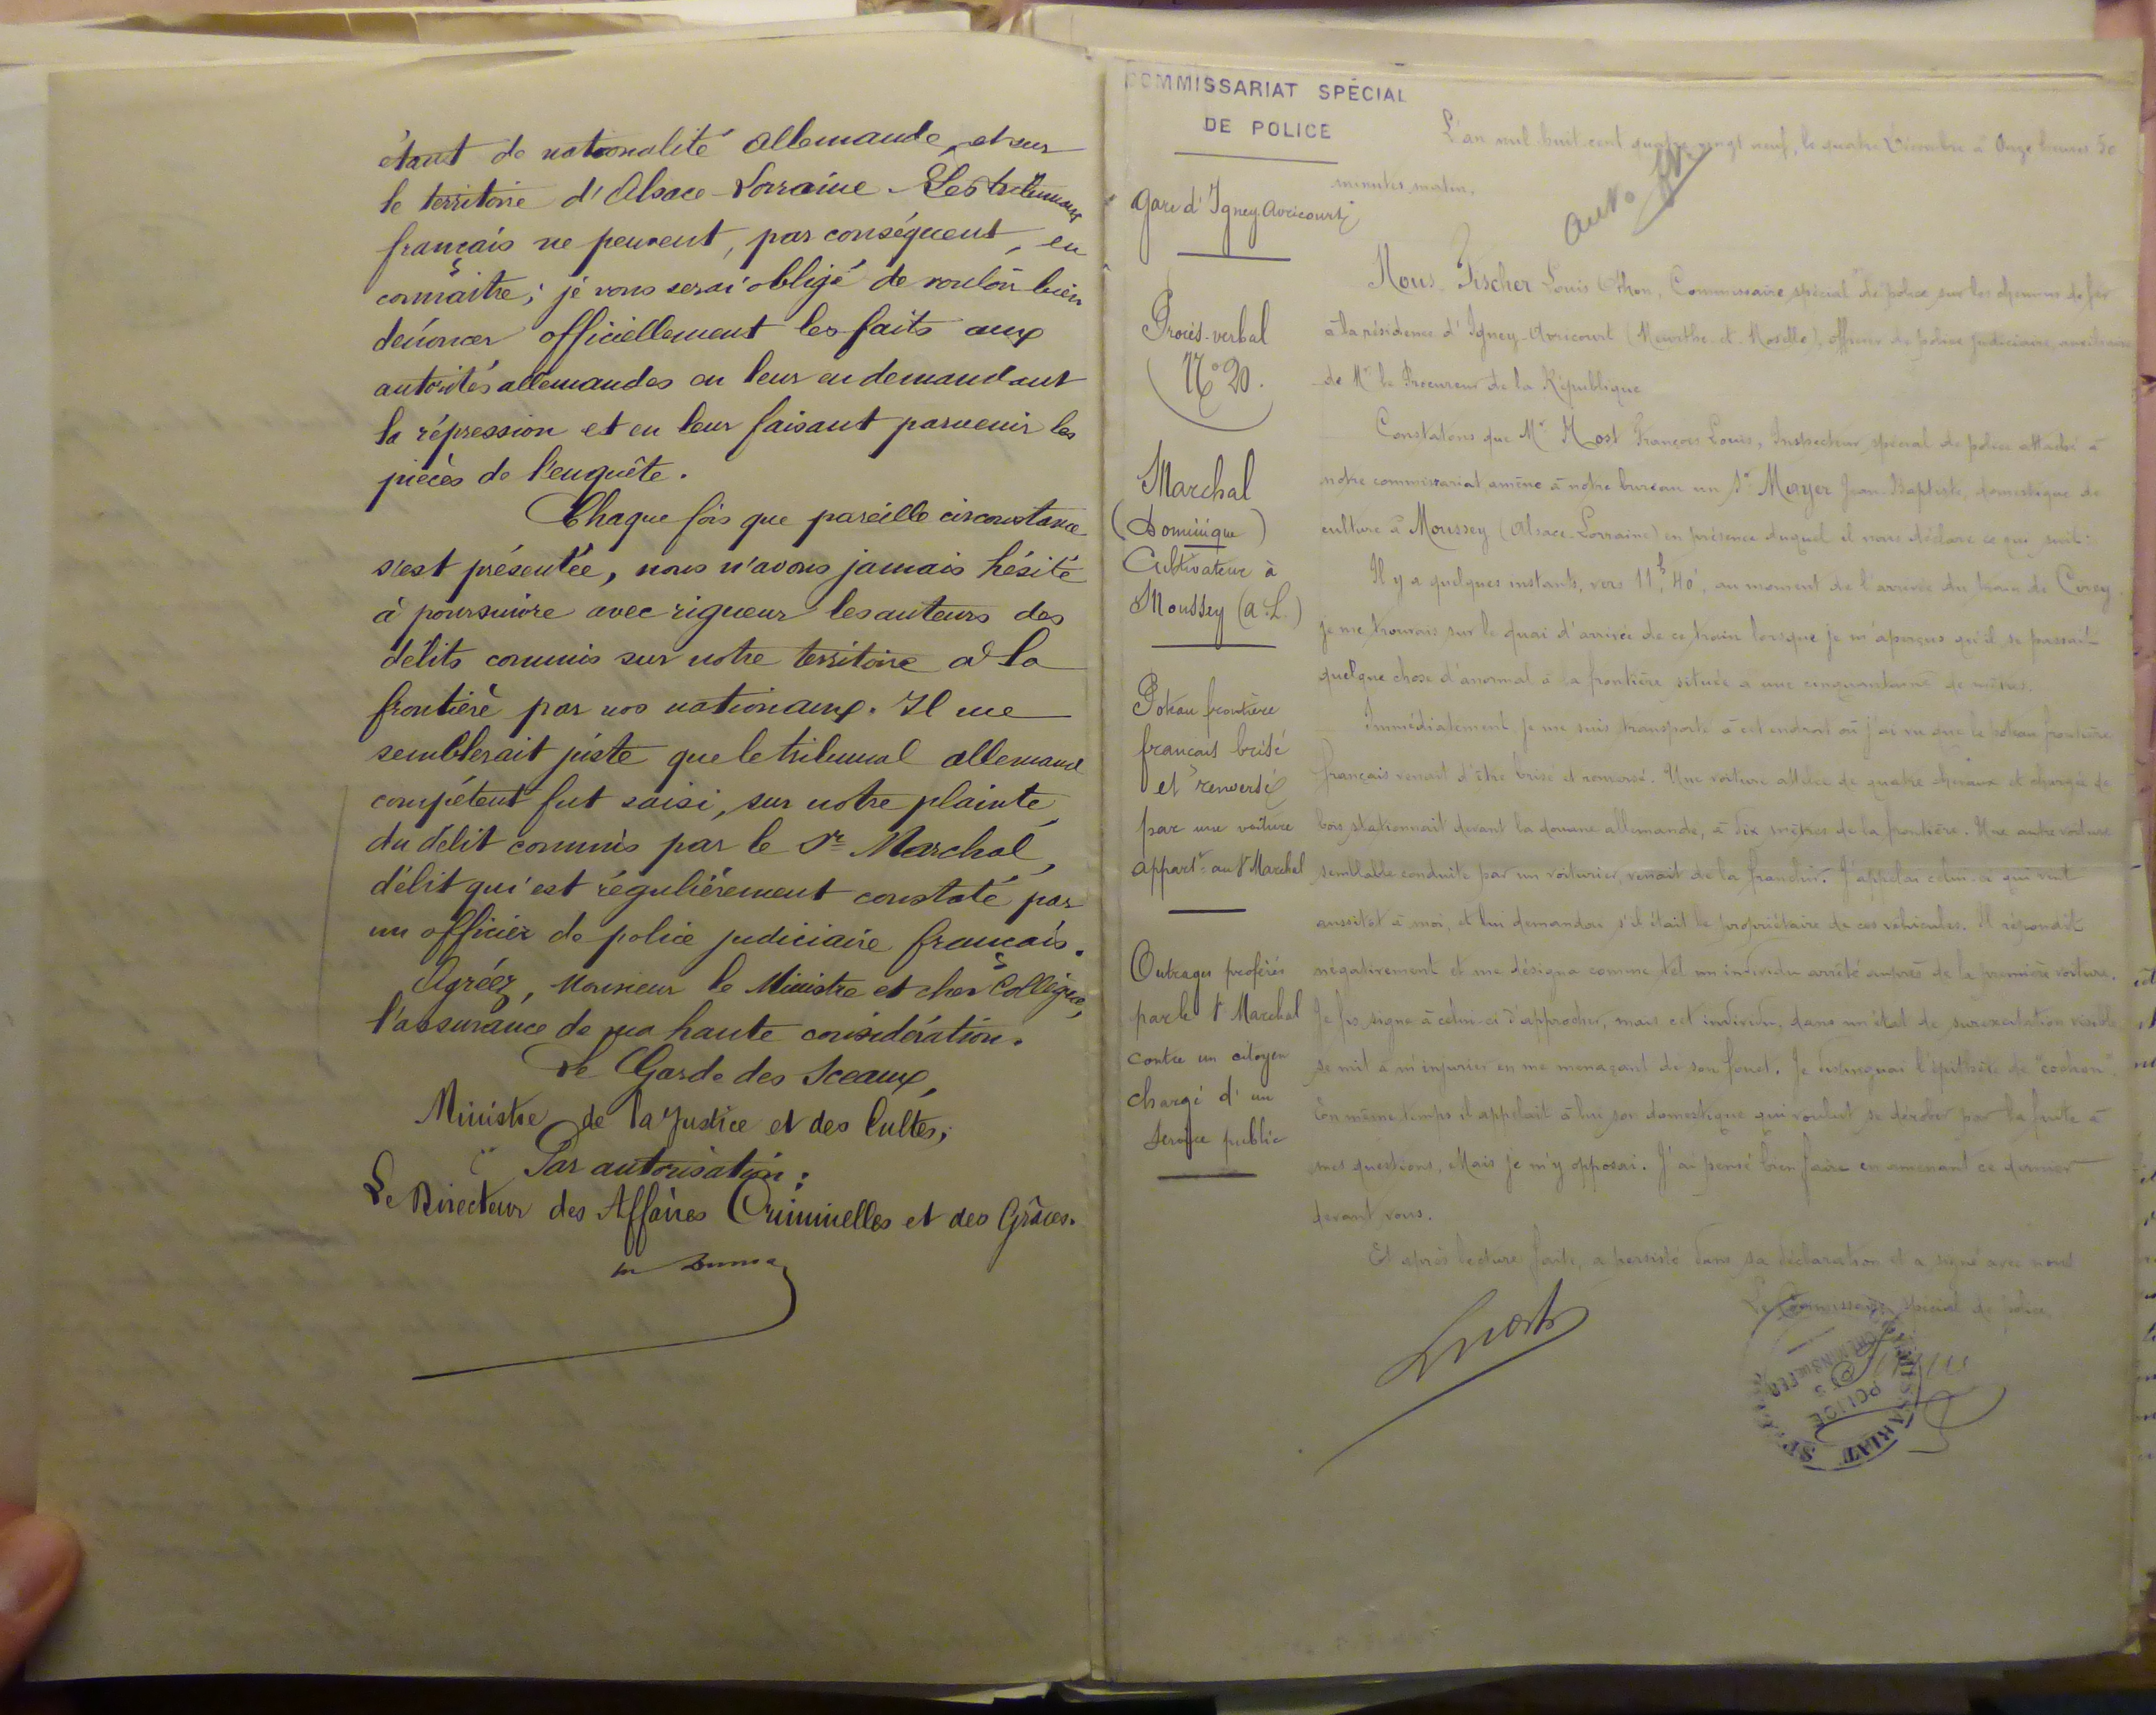 étant de nationalité allemande, et sur
le territoire d'Alsace-Lorraine. Les tribunaux
français ne peuvent, par conséquent, en
connaître; je vous serai obligé de vouloir bien
dénoncer officiellement les faits aux
autorités allemandes en leur en demandant
la répression et en leur faisant parvenir les
pièces de l'enquête.
Chaque fois que pareille circonstance
s'est présentée, nous n'avons jamais hésité
à poursuivre avec rigueur les auteurs des
délits commis sur notre territoire à la
frontière par nos nationaux. Il me
semblerait juste que le tribunal allemand
compétent fut saisi, sur notre plainte,
du délit commis par le Sr Marchal,
délit qui est régulièrement constaté par
un officier de police judiciaire français.
Agréez, Monsieur le Ministre et cher Collègue,
l'assurance de ma haute considération.
Le Garde des Sceaux,
Ministre de la Justice et des Cultes,
Par autorisation:
Le Directeur des Affaires Criminelles et des Grâces.
COMMISSARIAT SPÉCIAL
DE POLICE
Gare d'Igney-Avricourt
Procès-verbal
No 20.
Marchal
(Dominique)
Cultivateur à
Moussey (A.L.)
Poteau frontière
français brisé
et renversé
par une voiture
appart^t au S^r Marchal
Outrages proférés
par le S^r Marchal
contre un citoyen
chargé d'un
service public
L'an mil huit cent quatre vingt neuf, le quatre Décembre à Onze heures 50
minutes matin.
Nous, Fischer Louis Othon, Commissaire spécial de police sur les chemins de fer
à la résidence d'Igney-Avricourt (Meurthe-et-Moselle), officier de police judiciaire, auxiliaire
de Mr le Procureur de la République
Constatons que Mr Host François Louis, Inspecteur spécial de police attaché à
notre commissariat, amène à notre bureau un Sr Mayer Jean-Baptiste, domestique de
culture à Moussey (Alsace-Lorraine) en présence duquel il nous déclare ce qui suit:
Il y a quelques instants, vers 11h 40', au moment de l'arrivée du train de Cirey,
je me trouvais sur le quai d'arrivée de ce train lorsque je m'aperçus qu'il se passait
quelque chose d'anormal à la frontière située à une cinquantaine de mètres.
Immédiatement je me suis transporté à cet endroit où j'ai vu que le poteau frontière
français venait d'être brisé et renversé. Une voiture attelée de quatre chevaux et chargée de
bois stationnait devant la douane allemande, à dix mètres de la frontière. Une autre voiture
semblable conduite par un voiturier, venait de la franchir. J'appelai celui-ci qui vint
aussitôt à moi, et lui demandai s'il était le propriétaire de ces véhicules. Il répondit
négativement et me désigna comme tel un individu arrêté auprès de la première voiture.
Je fis signe à celui-ci d'approcher, mais cet individu, dans un état de surexcitation visible
se mit à m'injurier en me menaçant de son fouet. Je distinguai l'épithète de "cochon".
En même temps il appelait à lui son domestique qui voulut se dérober par la fuite à
mes questions, Mais je m'y opposai. J'ai pensé bien faire en amenant ce dernier
devant vous.
Et après lecture faite, a persisté dans sa déclaration et a signé avec nous
Le Commissaire spécial de police,
COMMISSARIAT
POLICE